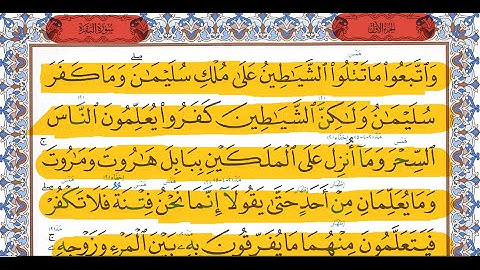 الجزء الأول
سورة البقرة
وَاتَّبَعُوا مَا تَتْلُوا الشَّيَاطِينُ عَلَىٰ مُلْكِ سُلَيْمَانَ وَمَا كَفَرَ
سُلَيْمَانُ وَلَٰكِنَّ الشَّيَاطِينَ كَفَرُوا يُعَلِّمُونَ النَّاسَ
السِّحْرَ وَمَا أُنْزِلَ عَلَى الْمَلَكَيْنِ بِبَابِلَ هَارُوتَ وَمَارُوتَ
وَمَا يُعَلِّمَانِ مِنْ أَحَدٍ حَتَّىٰ يَقُولَا إِنَّمَا نَحْنُ فِتْنَةٌ فَلَا تَكْفُرْ
فَيَتَعَلَّمُونَ مِنْهُمَا مَا يُفَرِّقُونَ بِهِ بَيْنَ الْمَرْءِ وَزَوْجِهِ